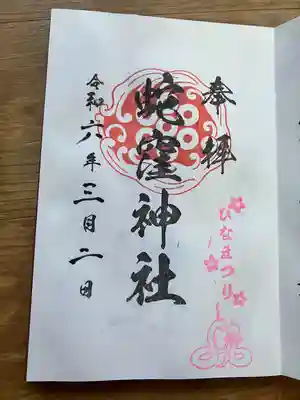 奉拝
蛇窪神社
令和六年三月二日
ひなまつり